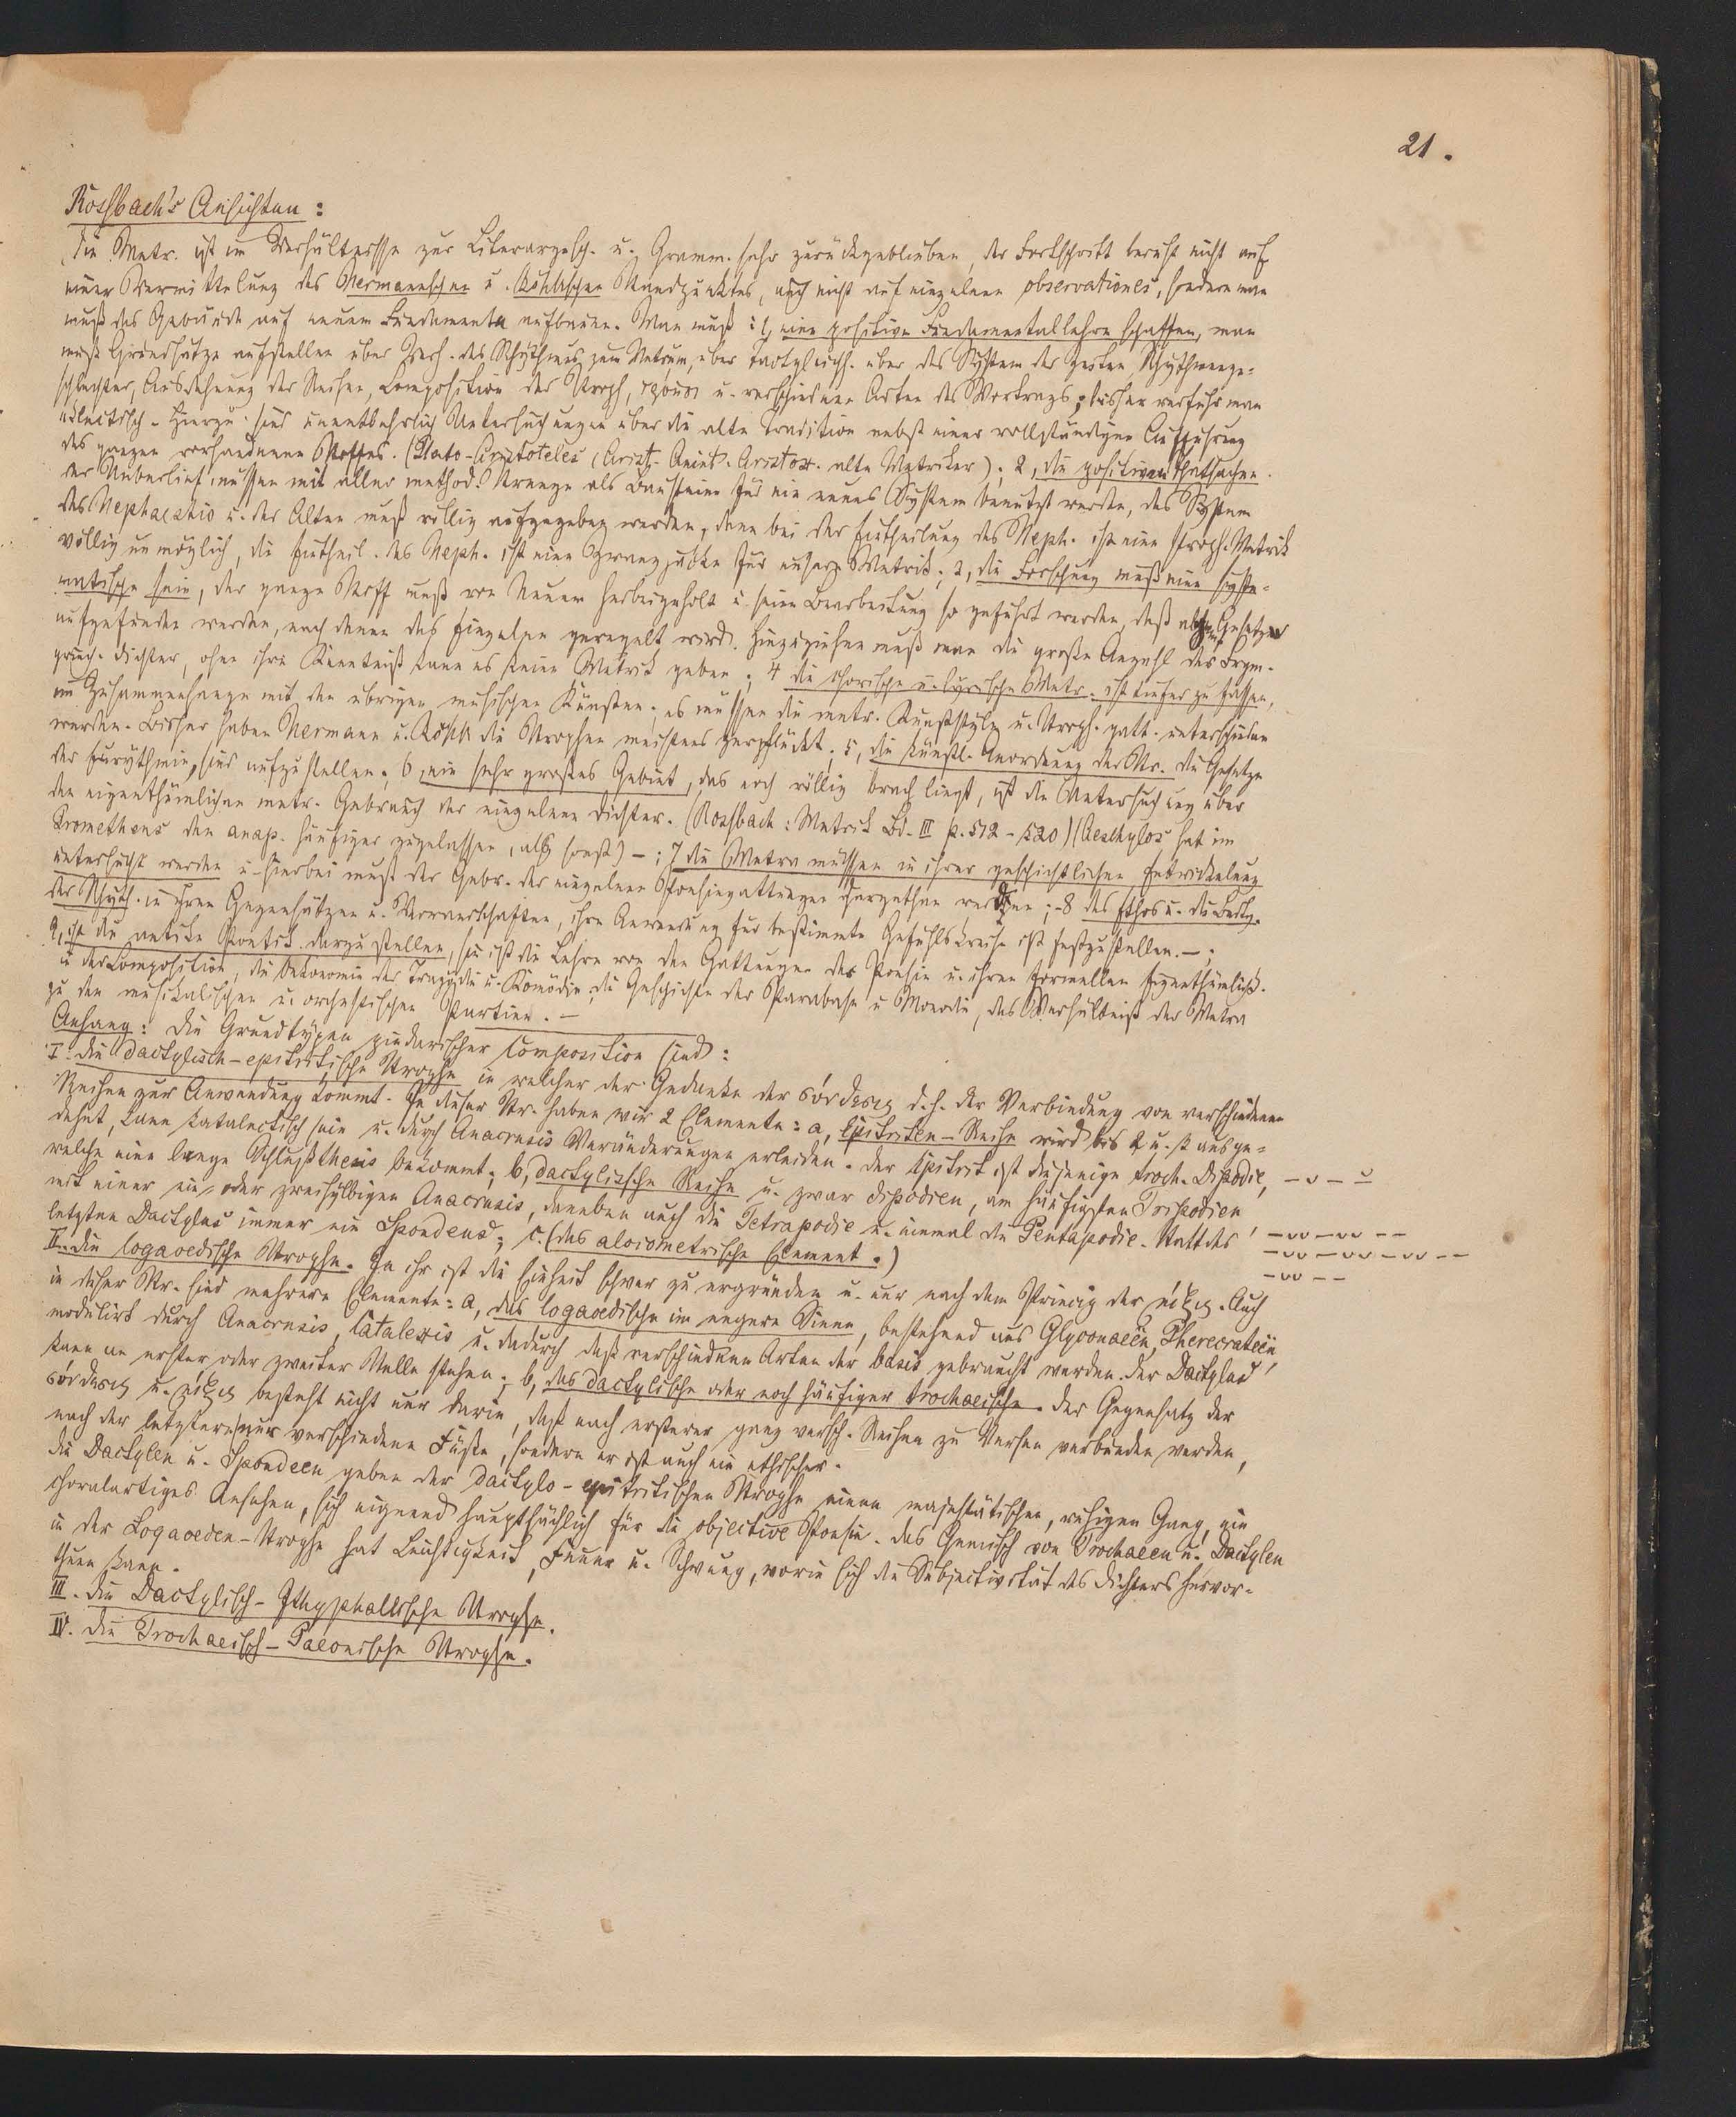 21.
Rossbach's Ansichten:
Die Metr. ist im Verhältnisse zur Literargesch. u. Gramm. sehr zurückgeblieben, der Fortschritt beruht nicht auf
einer Vermittelung des Hermannschen u. Böckhschen Standpunktes, auch nicht auf einzelnen observationes, sondern man
muß das Gebäude auf neuem Fundamente aufbauen. Man muß: 1, eine positive Fundamentallehre schaffen, man
muß Grundsätze aufstellen über Verh. des Rhythmus zum Metrum, über Tactgleichh. über das System der Zeiten, Rhythmenge-
schlechter, Ausdehnung der Reihen, Composition der Stroph, u. verschiedene Arten des Vortrags; bisher verfuhr man
eclectisch. Hierzu sind unentbehrlich Untersuchungen über die alte Tradition nebst einer vollständigen Aufführung
des ganzen vorhandenen Stoffes. (Plato-Aristoteles, Arist. Quint. Aristox. alte Metriker); 2, die positiven Thatsachen
der Ueberlief. müssen mit aller method. Strenge als Bausteine für ein neues System benutzt werden, das System
des Hephaestio u. der Alten muß völlig aufgegeben werden, denn bei der Eintheilung des Heph. ist eine stroph. Metrik
völlig unmöglich, die Eintheil. des Heph. ist eine Zwangsjacke für unsere Metrik; 3, die Forschung muß eine syste-
matische sein, der ganze Stoff muß von Neuem herbeigeholt u. seine Bearbeitung so geführt werden, daß Gesetze
aufgefunden werden, nach denen das Einzelne geregelt wird. Hinzuziehen muß man die große Anzahl der Fragm.
griech. Dichter, ohne ihre Kenntniß kann es keine Metrik geben; 4 die chorische u. lyrische Metr. ist tiefer zu fassen,
im Zusammenhange mit den übrigen musischen Künsten; es müssen die metr. Kunststyle u. Stroph. gatt. unterschieden
werden. Bisher haben Hermann u. Böckh die Strophen meistens zerpflückt; 5, die künstl. Anordnung der Str. die Gesetze
der Eurythmie, sind aufzustellen; 6, ein sehr großes Gebiet, das noch völlig brach liegt, ist die Untersuchung über
den eigenthümlichen metr. Gebrauch der einzelnen Dichter. (Rossbach: Metrik Bd. III p. 512-520) (Aeschylos hat im
Prometheus den anap. häufiger zugelassen, als sonst) -; 7 die Metra müssen in ihrer geschichtlichen Entwickelung
untersucht werden u. hierbei muß der Gebr. der einzelnen Poesiegattungen dargethan werden; -8 das Ethos u. die Bedtg.
der Rhyth. in ihren Gegensätzen u. Verwandschaften, ihre Anwendung für bestimmte Gefühlskreise ist festzustellen. -;
9, ist die antike Poetik darzustellen, sie ist die Lehre von den Gattungen der Poesie u. ihren formellen Eigenthümlichk.
in der Composition, die Oekonomie der Tragödie u. Komödie, die Geschichte der Parabase u Monodie, das Verhältniß der Metra
zu den musikalischen u. orchestischen Partien. -
Anhang: Die Grundtypen pindarischer Composition sind:
I. die dactylisch-epitritische Strophe in welcher der Gedanke der σύνθεσις d.h. der Verbindung von verschiedenen
Reihen zur Anwendung kommt. In dieser Str. haben wir 2 Elemente: a, Epitriten-Reihe wird bis ausge-
dehnt, kann katalectisch sein u. durch Anacrusis Veränderungen erleiden. Der Epitrit ist diejenige troch. Dipodie, – ᴗ – ᴗ̲
welche eine lange Schlußthesis bekommt; b, dactylische Reihe u. zwar Dipodien, am häufigsten Tripodien
mit einer ein- oder zweisylbigen Anacrusis, daneben auch die Tetrapodie u. einmal die Pentapodie. Statt des – ᴗᴗ – ᴗᴗ – –
letzten Dactylus immer ein Spondeus; c. (das aloiometrische Element.) – ᴗᴗ – ᴗᴗ – ᴗᴗ – –
– ᴗᴗ – –
II. die logaoedische Strophe. In ihr ist die Einheit schwer zu ergründen u. nur nach dem Princip der μίξις. Auch
in dieser Str. sind mehrere Elemente: a, das logaoedische im engern Sinne, bestehend aus Glyconaeen, Pherecrateen
modulirt durch Anacrusis, Catalexis u. dadurch daß verschiedene Arten der basis gebraucht werden. Der Dactylus
kann an erster oder zweiter Stelle stehen; b, das dactylische oder noch häufiger trochaeische. Der Gegensatz der
σύνθεσις u. μίξις besteht nicht nur darin, daß nach ersterer ganz versch. Reihen zu Versen verbunden werden,
nach der letztern nur verschiedene Füße, sondern er ist auch ein ethischer.
die Dactylen u. Spondeen geben der dactylo-epitritischen Strophe einen majestätischen, ruhigen Gang, ein
choralartiges Ansehen, sich eignend hauptsächlich für die objective Poesie. Das Gemisch von Trochaeen u. Dactylen
in der Logaoeden-Strophe hat Leichtigkeit, Feuer u. Schwung, worin sich die Subjectivität des Dichters hervor-
thun kann.
III. die Dactylisch-Ithyphallische Strophe.
IV. die Trochaeisch-Paeonische Strophe.